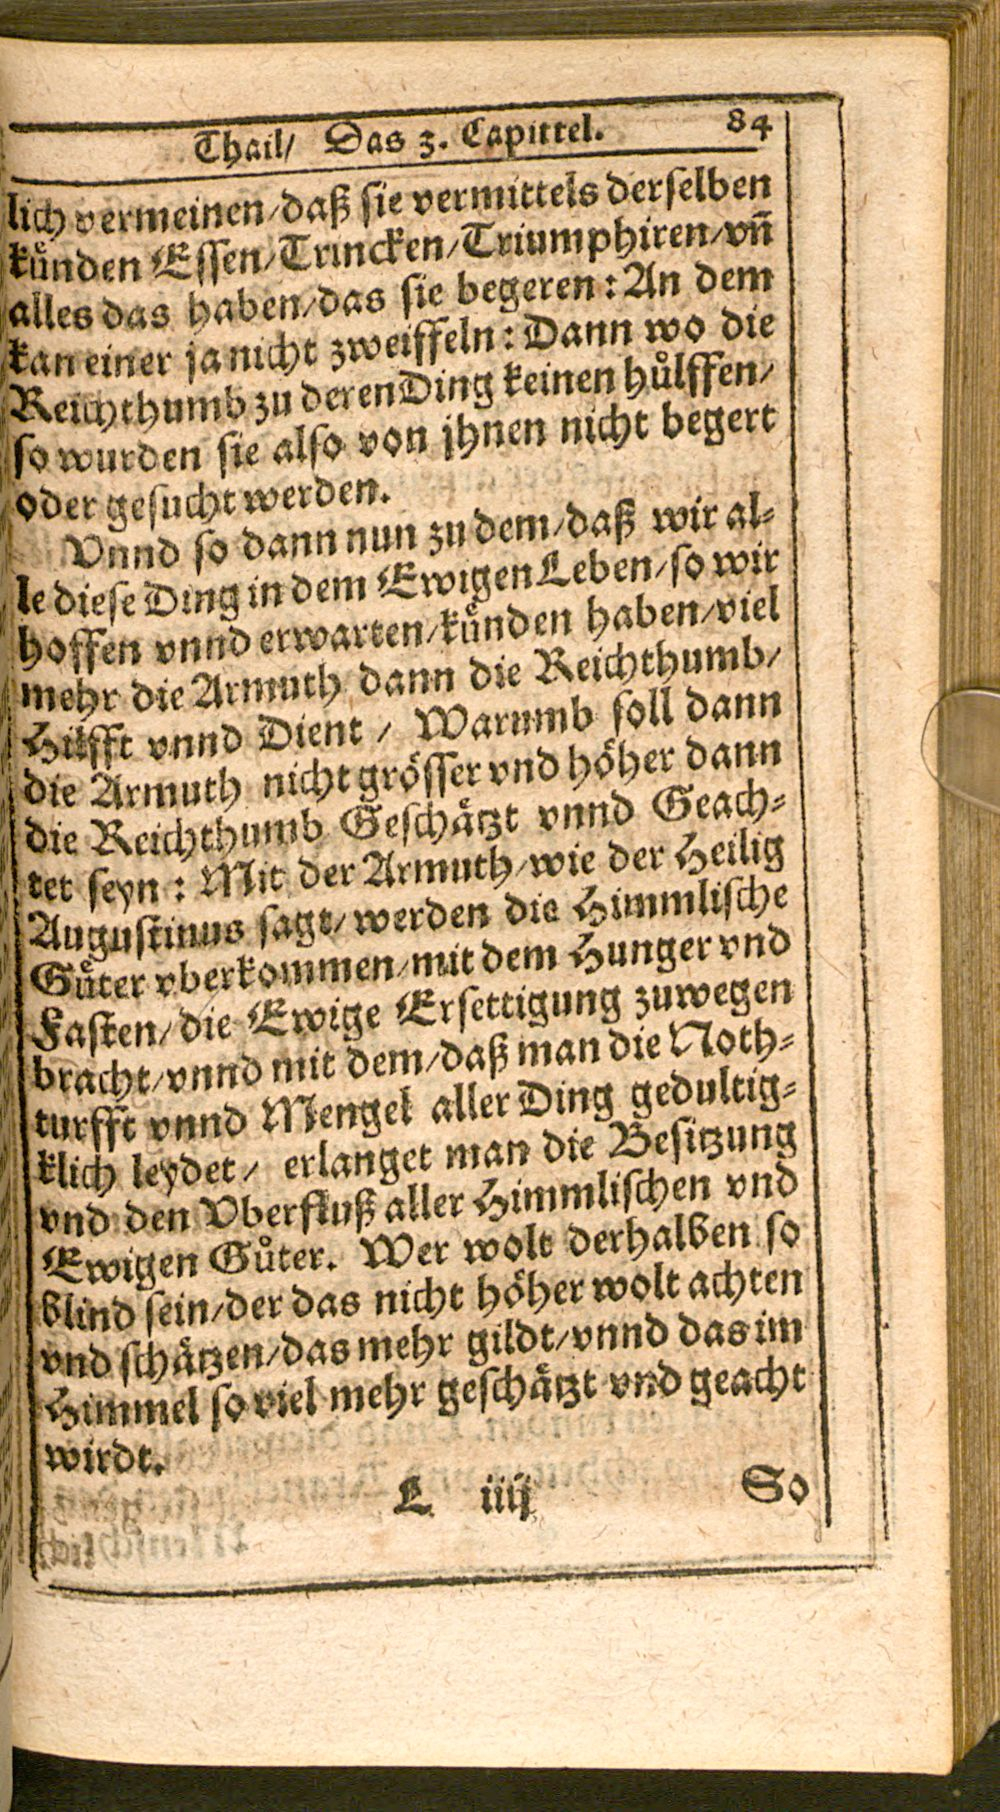 Thail/ Das 3. Capittel. 84
lich vermeinen/daß sie vermittels derselben
kuͤnden Essen/Trincken/Triumphiren/vn̄
alles das haben/das sie begeren: An dem
kan einer ja nicht zweiffeln: Dann wo die
Reichthumb zu deren Ding keinen huͤlffen/
so wurden sie also von jhnen nicht begert
oder gesucht werden.
Vnnd so dann nun zu dem/daß wir al-
le diese Ding in dem Ewigen Leben/so wir
hoffen vnnd erwarten/kuͤnden haben/viel
mehr die Armuth dann die Reichthumb/
Hilfft vnnd Dient / Warumb soll dann
die Armuth nicht groͤsser vnd hoͤher dann
die Reichthumb Geschaͤtzt vnnd Geach-
tet seyn: Mit der Armuth/wie der Heilig
Augustinus sagt/werden die Himmlische
Guͤter vberkommen/mit dem Hunger vnd
Fasten/die Ewige Ersettigung zuwegen
bracht/vnnd mit dem/daß man die Noth-
turfft vnnd Mengel aller Ding gedultig-
klich leydet/ erlanget man die Besitzung
vnd den Vberfluß aller Himmlischen vnd
Ewigen Guͤter. Wer wolt derhalben so
blind sein/der das nicht hoͤher wolt achten
vnd schaͤtzen/das mehr gildt/vnnd das im
Himmel so viel mehr geschaͤtzt vnd geacht
wirdt.
L iiij So